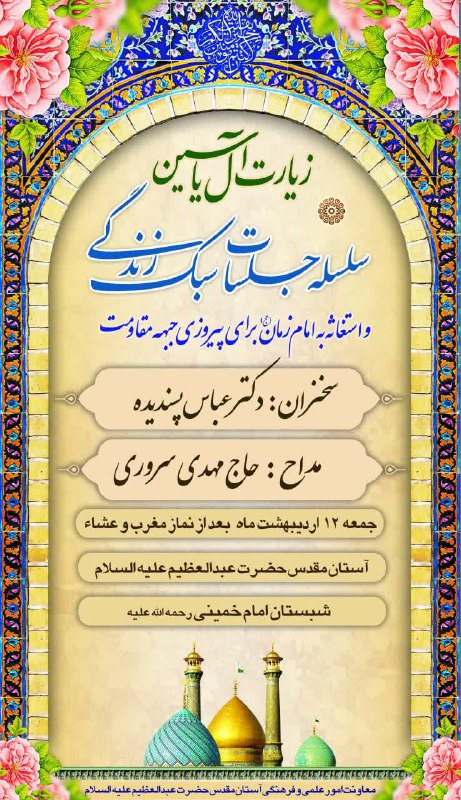 زیارت آل یاسین
سلسله جلسات سبک زندگی
و استغاثه به امام زمان برای پیروزی جبهه مقاومت
سخنران: دکتر عباس پسندیده
مداح: حاج مهدی سروری
جمعه ۱۲ اردیبهشت ماه بعد از نماز مغرب و عشاء
آستان مقدس حضرت عبدالعظیم علیه السلام
شبستان امام خمینی رحمه الله علیه
معاونت امور علمی و فرهنگی آستان مقدس حضرت عبدالعظیم علیه السلام